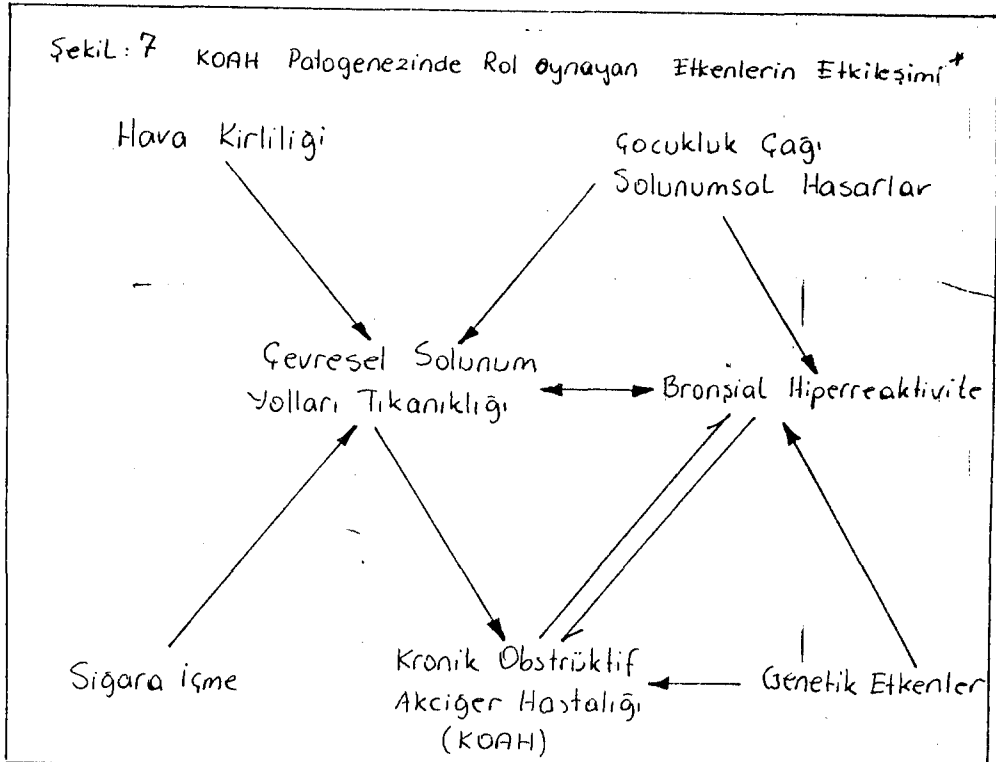 Şekil: 7 KOAH Patogenezinde Rol oynayan Etkenlerin Etkileşimi*
Hava Kirliliği
Çocukluk Çağı
Solunumsal Hasarlar
Çevresel Solunum
Yolları Tıkanıklığı
Bronşial Hiperreaktivite
Sigara içme
Kronik Obstrüktif
Akciğer Hastalığı
(KOAH)
Genetik Etkenler